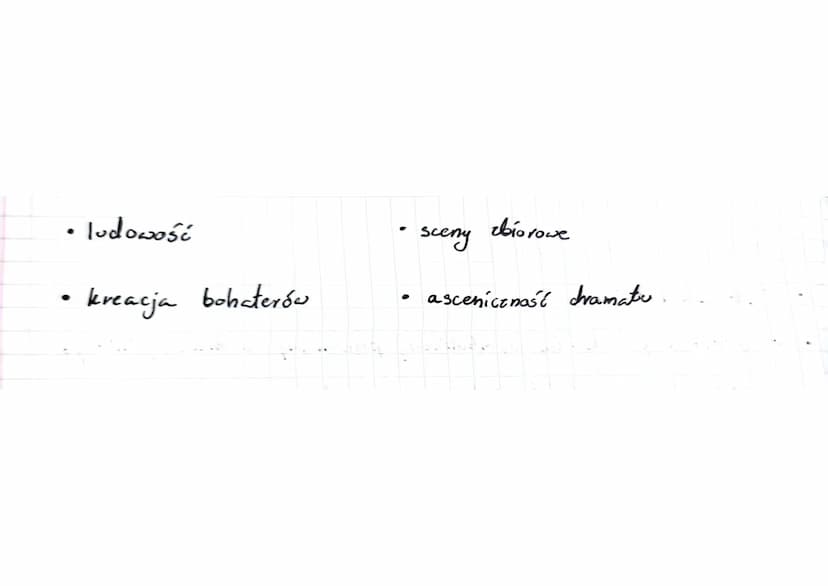 • ludowość • sceny zbiorowe
• kreacja bohaterów • asceniczność dramatu